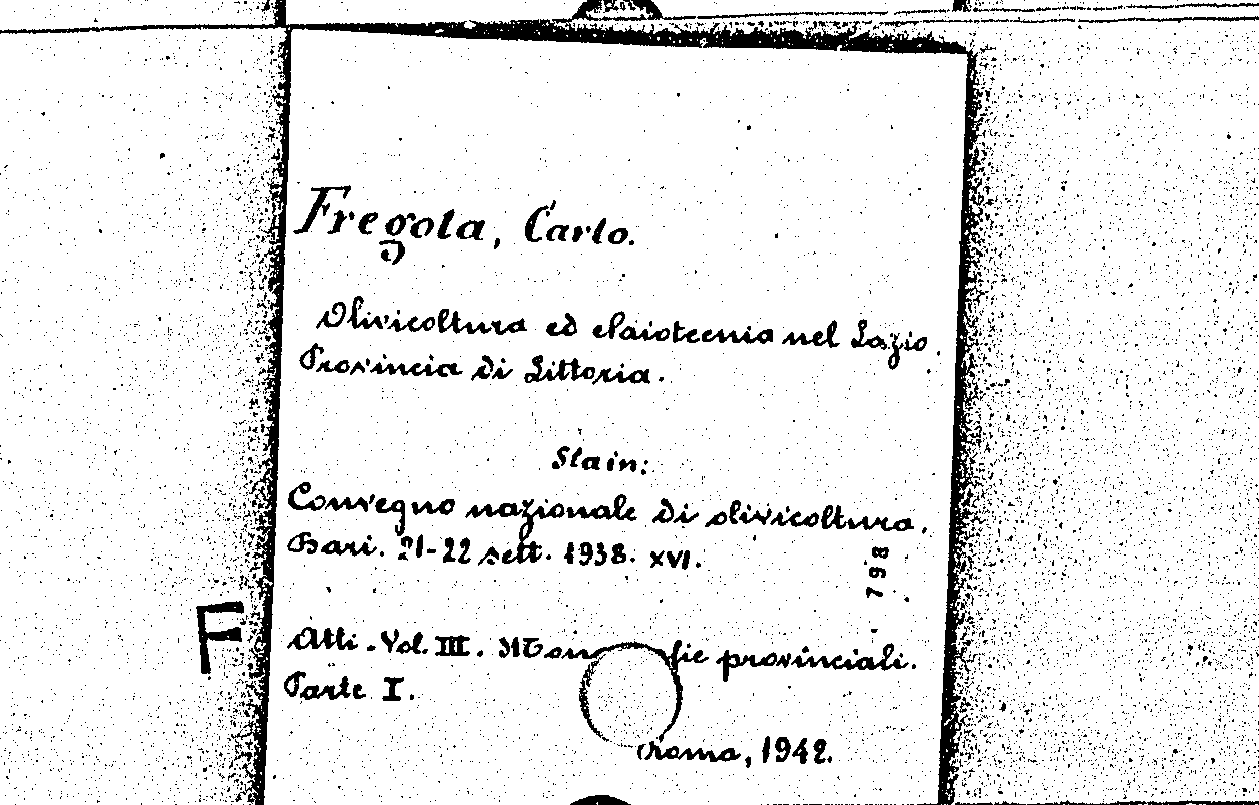 Fregola, Carlo.
Olivicoltura ed elaiotecnia nel Lazio.
Provincia di Littoria.
Sta in:
Convegno nazionale di olivicoltura.
Bari. 21-22 sett. 1938. XVI.
798
F
Atti. Vol. III. Mon fie provinciali.
Parte I.
Roma, 1942.